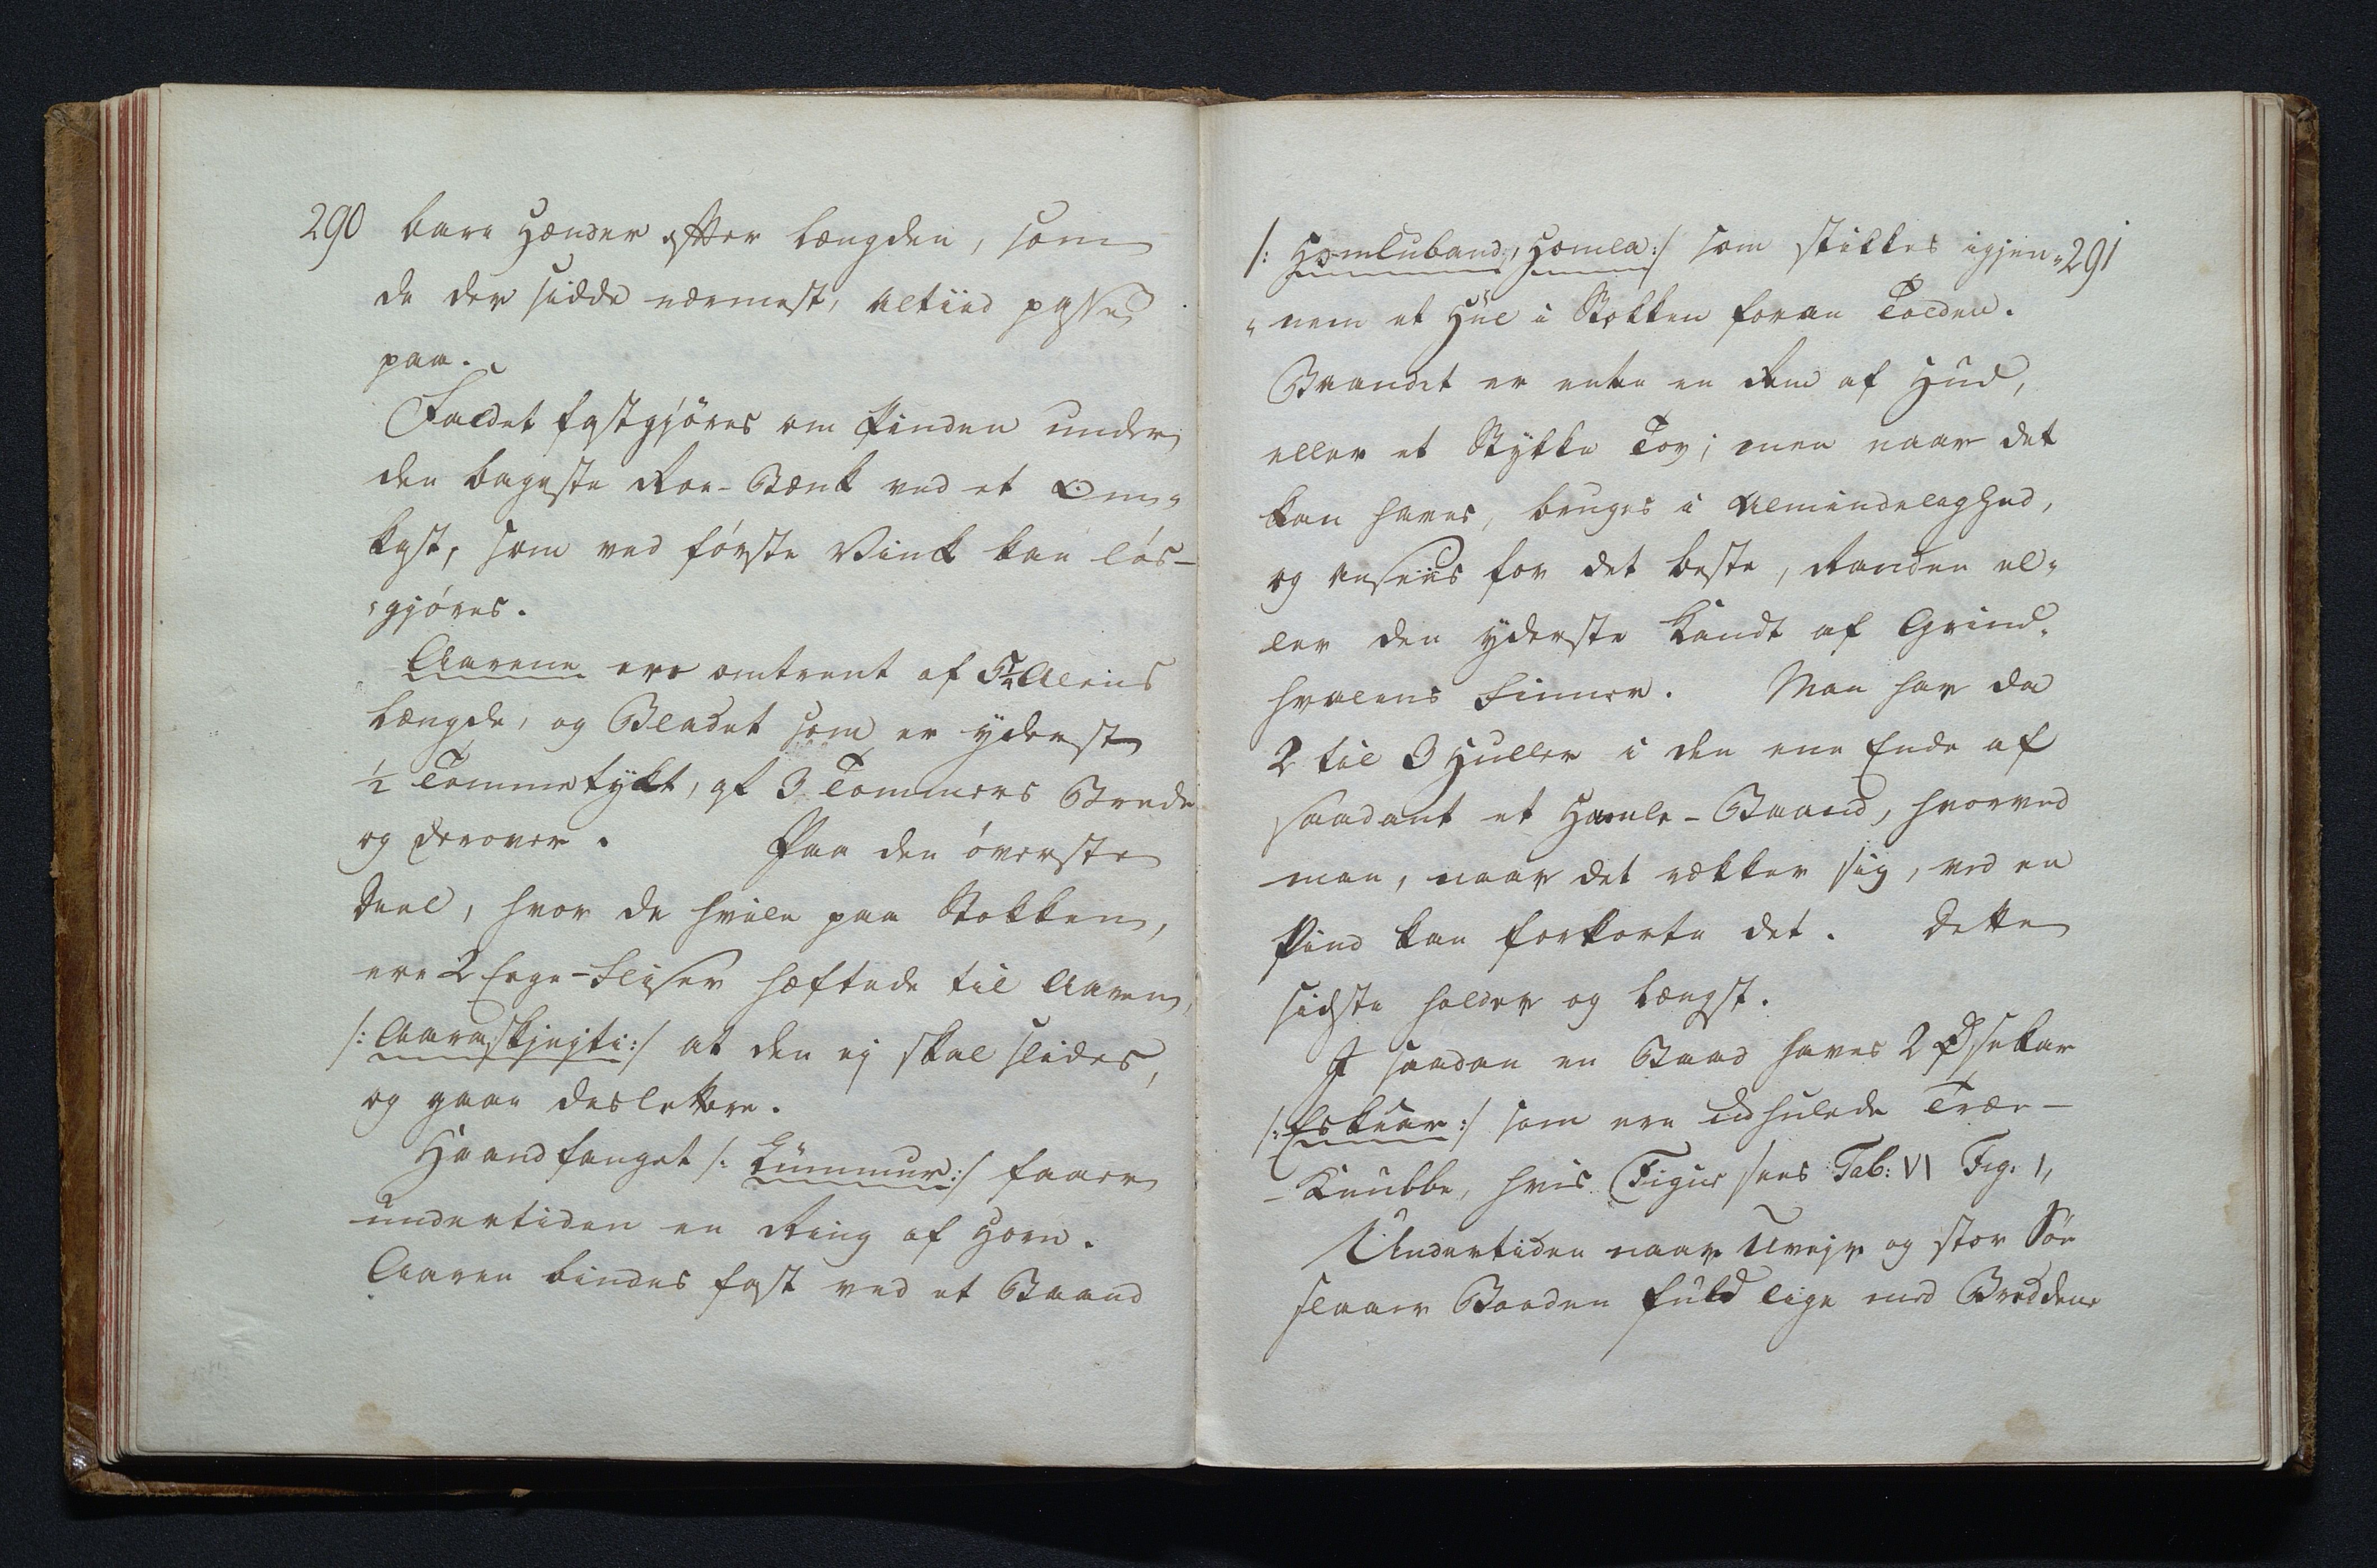 290 bare Hænder efter Længden, som
de der sidde nærmest, altiid passe
paa.
Faldet fastgjöres om Pinden under
den bageste Roe-Bænk ved et Om„
kast, som ved förste Vink kan lös-
„gjöres.
Aarene ere omtrent af 5½ Alens
Længde, og Bladet som er yderst
½ Tomme tykt, af 3 Tommers Brede
og derover. Paa den överste
Deel, hvor de hvile paa Stokken,
ere 2 Ege-Fliser hæftede til Aaren,
/: Aaraskjejti:/ at den ej skal slides,
og gaae deslettere.
Haandfanget /: Lummur:/ faaer
undertiden en Ring af Horn.
Aaren bindes fast ved et Baand
/: Homluband, Homla:/ som stikkes igjen„ 291
„nem et Hul i Stokken foran Tolden.
Baandet er enten en Rem af Hud,
eller et Stykke Tov; men naar det
kan haves, bruges i Almindelighed,
og ansees for det beste, Randen el„
ler den yderste Kandt af Grind„
hvalens Finner. Man har da
2 til 3 Huller i den ene Ende af
saadant et Hamle-Baand, hvorved
man, naar det rekker sig, ved en
Pind kan forkorte det. Dette
sidste holder og længst.
I saadan en Baad haves 2 Øsekar
/: Eskuar:/ som ere udhulede Træe-
-Knubbe, hvis Figur sees Tab: VI Fig. 1,
Undertiden naar Uvejr og stor Söe
slaaer Baaden fuld lige med Breddene